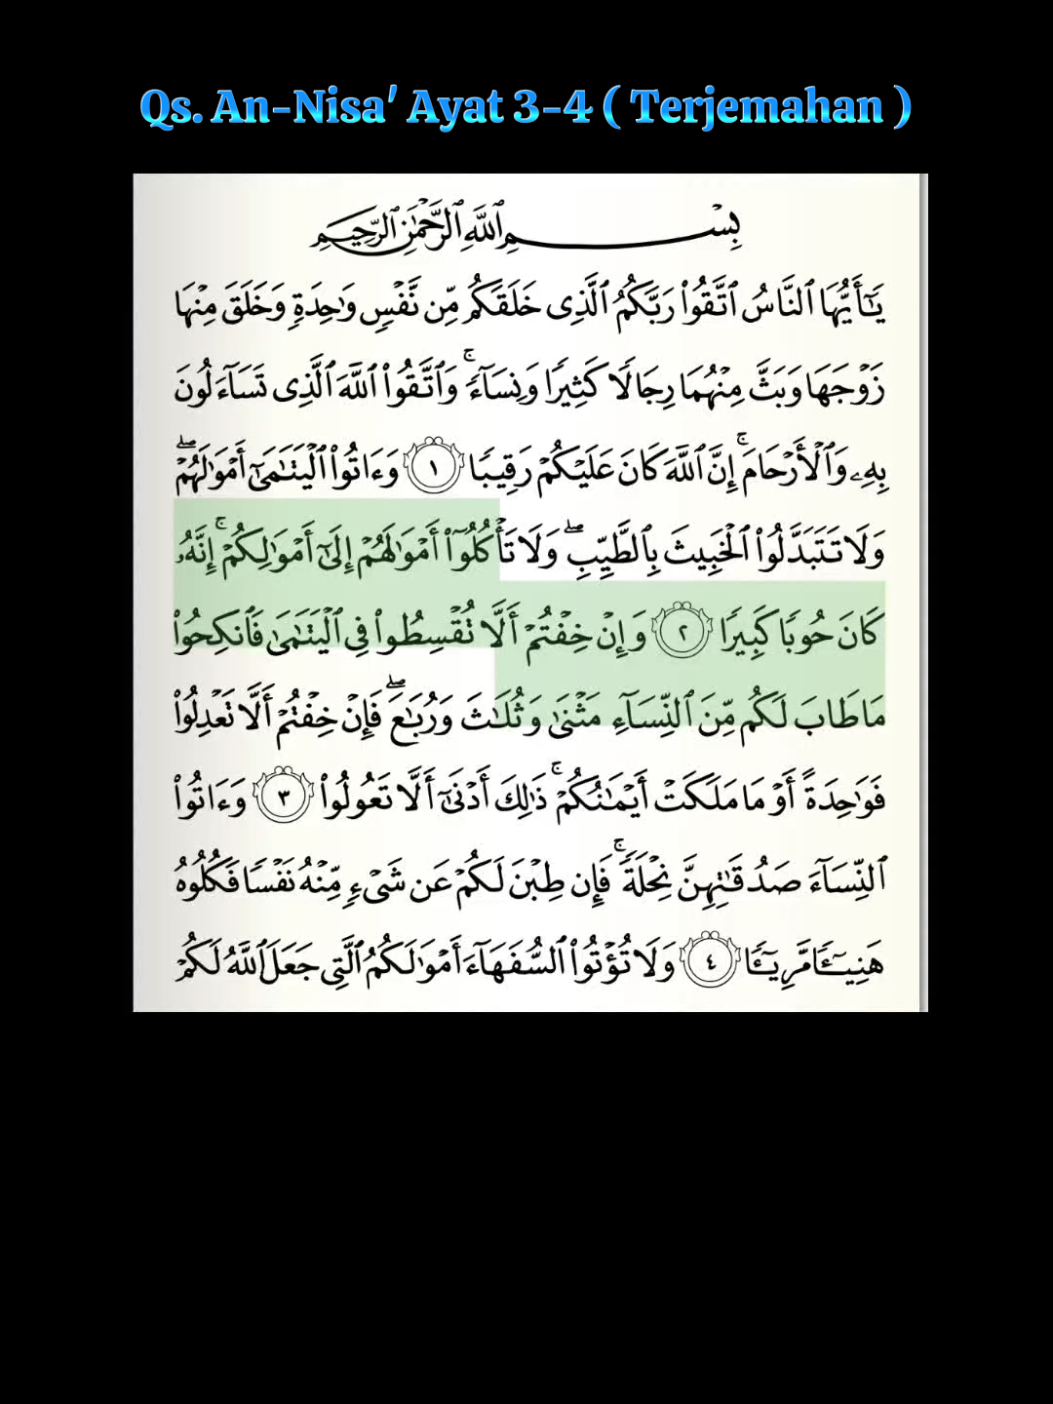 Qs. An-Nisa' Ayat 3-4 ( Terjemahan )
بِسْمِ ٱللَّهِ ٱلرَّحْمَٰنِ ٱلرَّحِيمِ
يَٰٓأَيُّهَا ٱلنَّاسُ ٱتَّقُوا۟ رَبَّكُمُ ٱلَّذِى خَلَقَكُم مِّن نَّفْسٍ وَٰحِدَةٍ وَخَلَقَ مِنْهَا
زَوْجَهَا وَبَثَّ مِنْهُمَا رِجَالًا كَثِيرًا وَنِسَآءً ۚ وَٱتَّقُوا۟ ٱللَّهَ ٱلَّذِى تَسَآءَلُونَ
بِهِۦ وَٱلْأَرْحَامَ ۚ إِنَّ ٱللَّهَ كَانَ عَلَيْكُمْ رَقِيبًا ١ وَءَاتُوا۟ ٱلْيَتَٰمَىٰٓ أَمْوَٰلَهُمْ ۖ
وَلَا تَتَبَدَّلُوا۟ ٱلْخَبِيثَ بِٱلطَّيِّبِ ۖ وَلَا تَأْكُلُوٓا۟ أَمْوَٰلَهُمْ إِلَىٰٓ أَمْوَٰلِكُمْ ۚ إِنَّهُۥ
كَانَ حُوبًا كَبِيرًا ٢ وَإِنْ خِفْتُمْ أَلَّا تُقْسِطُوا۟ فِى ٱلْيَتَٰمَىٰ فَٱنكِحُوا۟
مَا طَابَ لَكُم مِّنَ ٱلنِّسَآءِ مَثْنَىٰ وَثُلَٰثَ وَرُبَٰعَ ۖ فَإِنْ خِفْتُمْ أَلَّا تَعْدِلُوا۟
فَوَٰحِدَةً أَوْ مَا مَلَكَتْ أَيْمَٰنُكُمْ ۚ ذَٰلِكَ أَدْنَىٰٓ أَلَّا تَعُولُوا۟ ٣ وَءَاتُوا۟
ٱلنِّسَآءَ صَدُقَٰتِهِنَّ نِحْلَةً ۚ فَإِن طِبْنَ لَكُمْ عَن شَىْءٍ مِّنْهُ نَفْسًا فَكُلُوهُ
هَنِيٓـًٔا مَّرِيٓـًٔا ٤ وَلَا تُؤْتُوا۟ ٱلسُّفَهَآءَ أَمْوَٰلَكُمُ ٱلَّتِى جَعَلَ ٱللَّهُ لَكُمْ